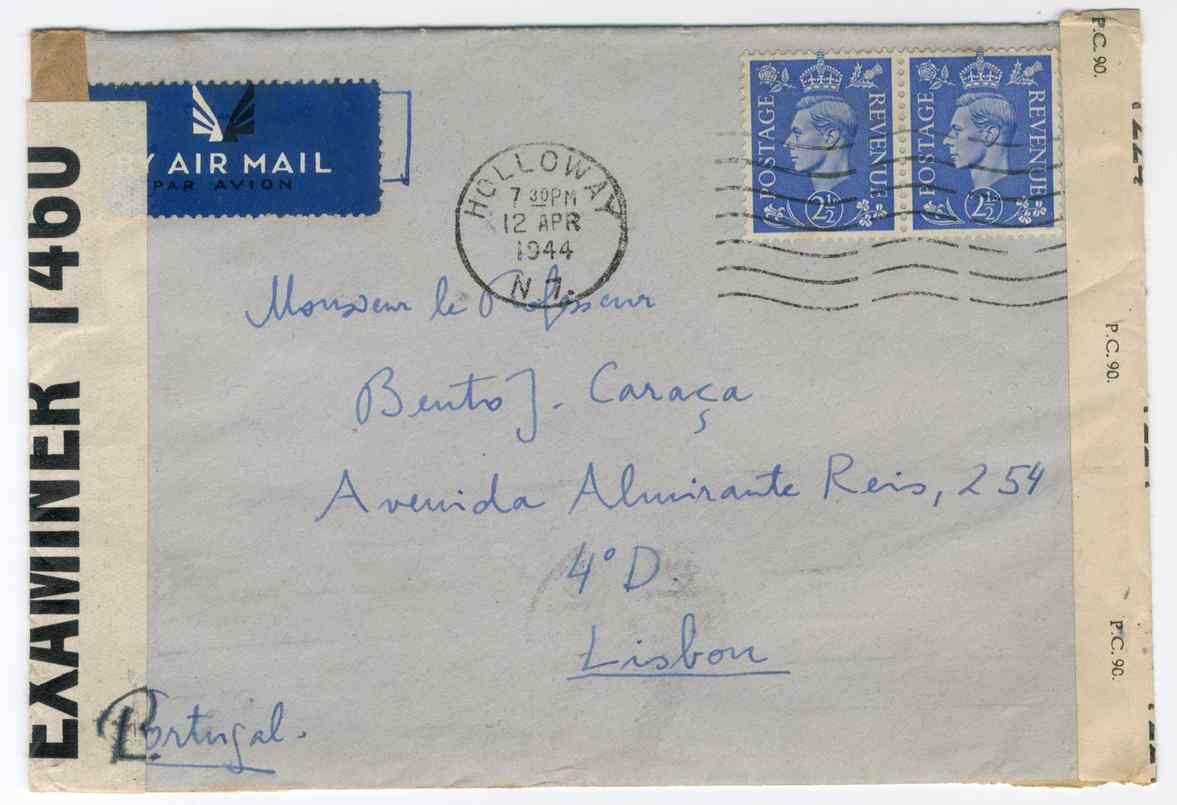 P.C. 90.
BY AIR MAIL
PAR AVION
POSTAGE REVENUE
2½
POSTAGE REVENUE
2½
HOLLOWAY
7 30PM
12 APR
1944
N.7.
EXAMINER 1460
Monsieur le Professeur
Bento J. Caraça
Avenida Almirante Reis, 254
4º D.
Lisbon
Portugal.
P.C. 90.
P.C. 90.